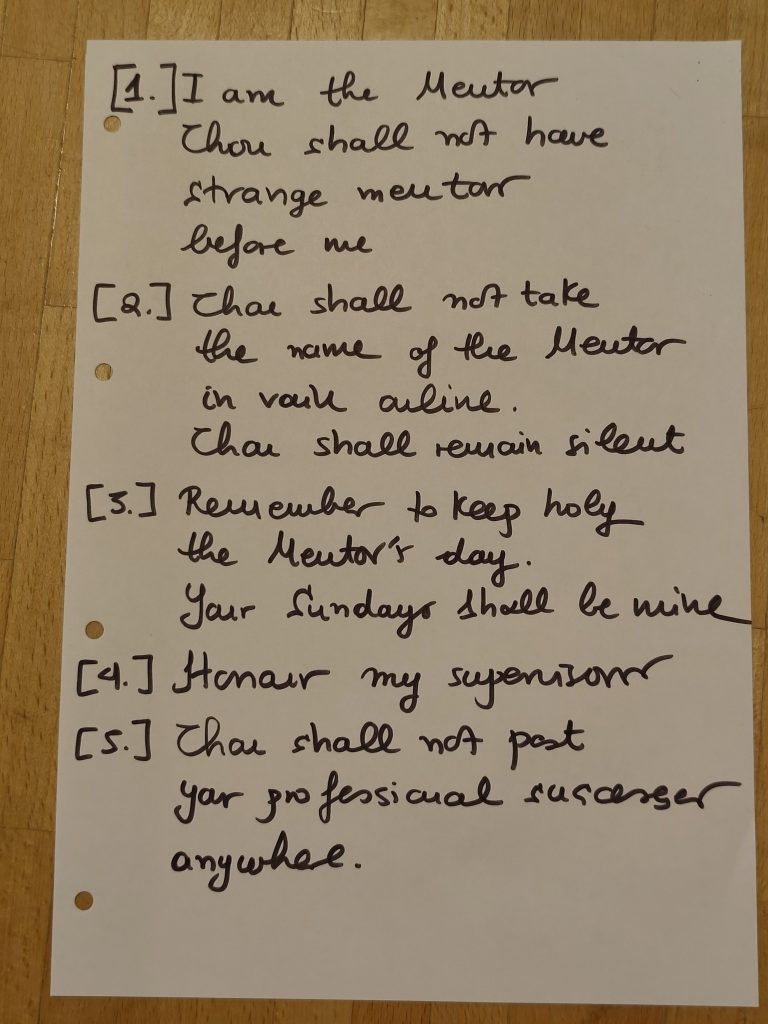 [1.] I am the Mentor
Thou shall not have
strange mentor
before me
[2.] Thou shall not take
the name of the Mentor
in vain online.
Thou shall remain silent
[3.] Remember to keep holy
the Mentor's day.
Your Sundays shall be mine
[4.] Honour my supervisorr
[5.] Thou shall not post
your professional successer
anywhere.